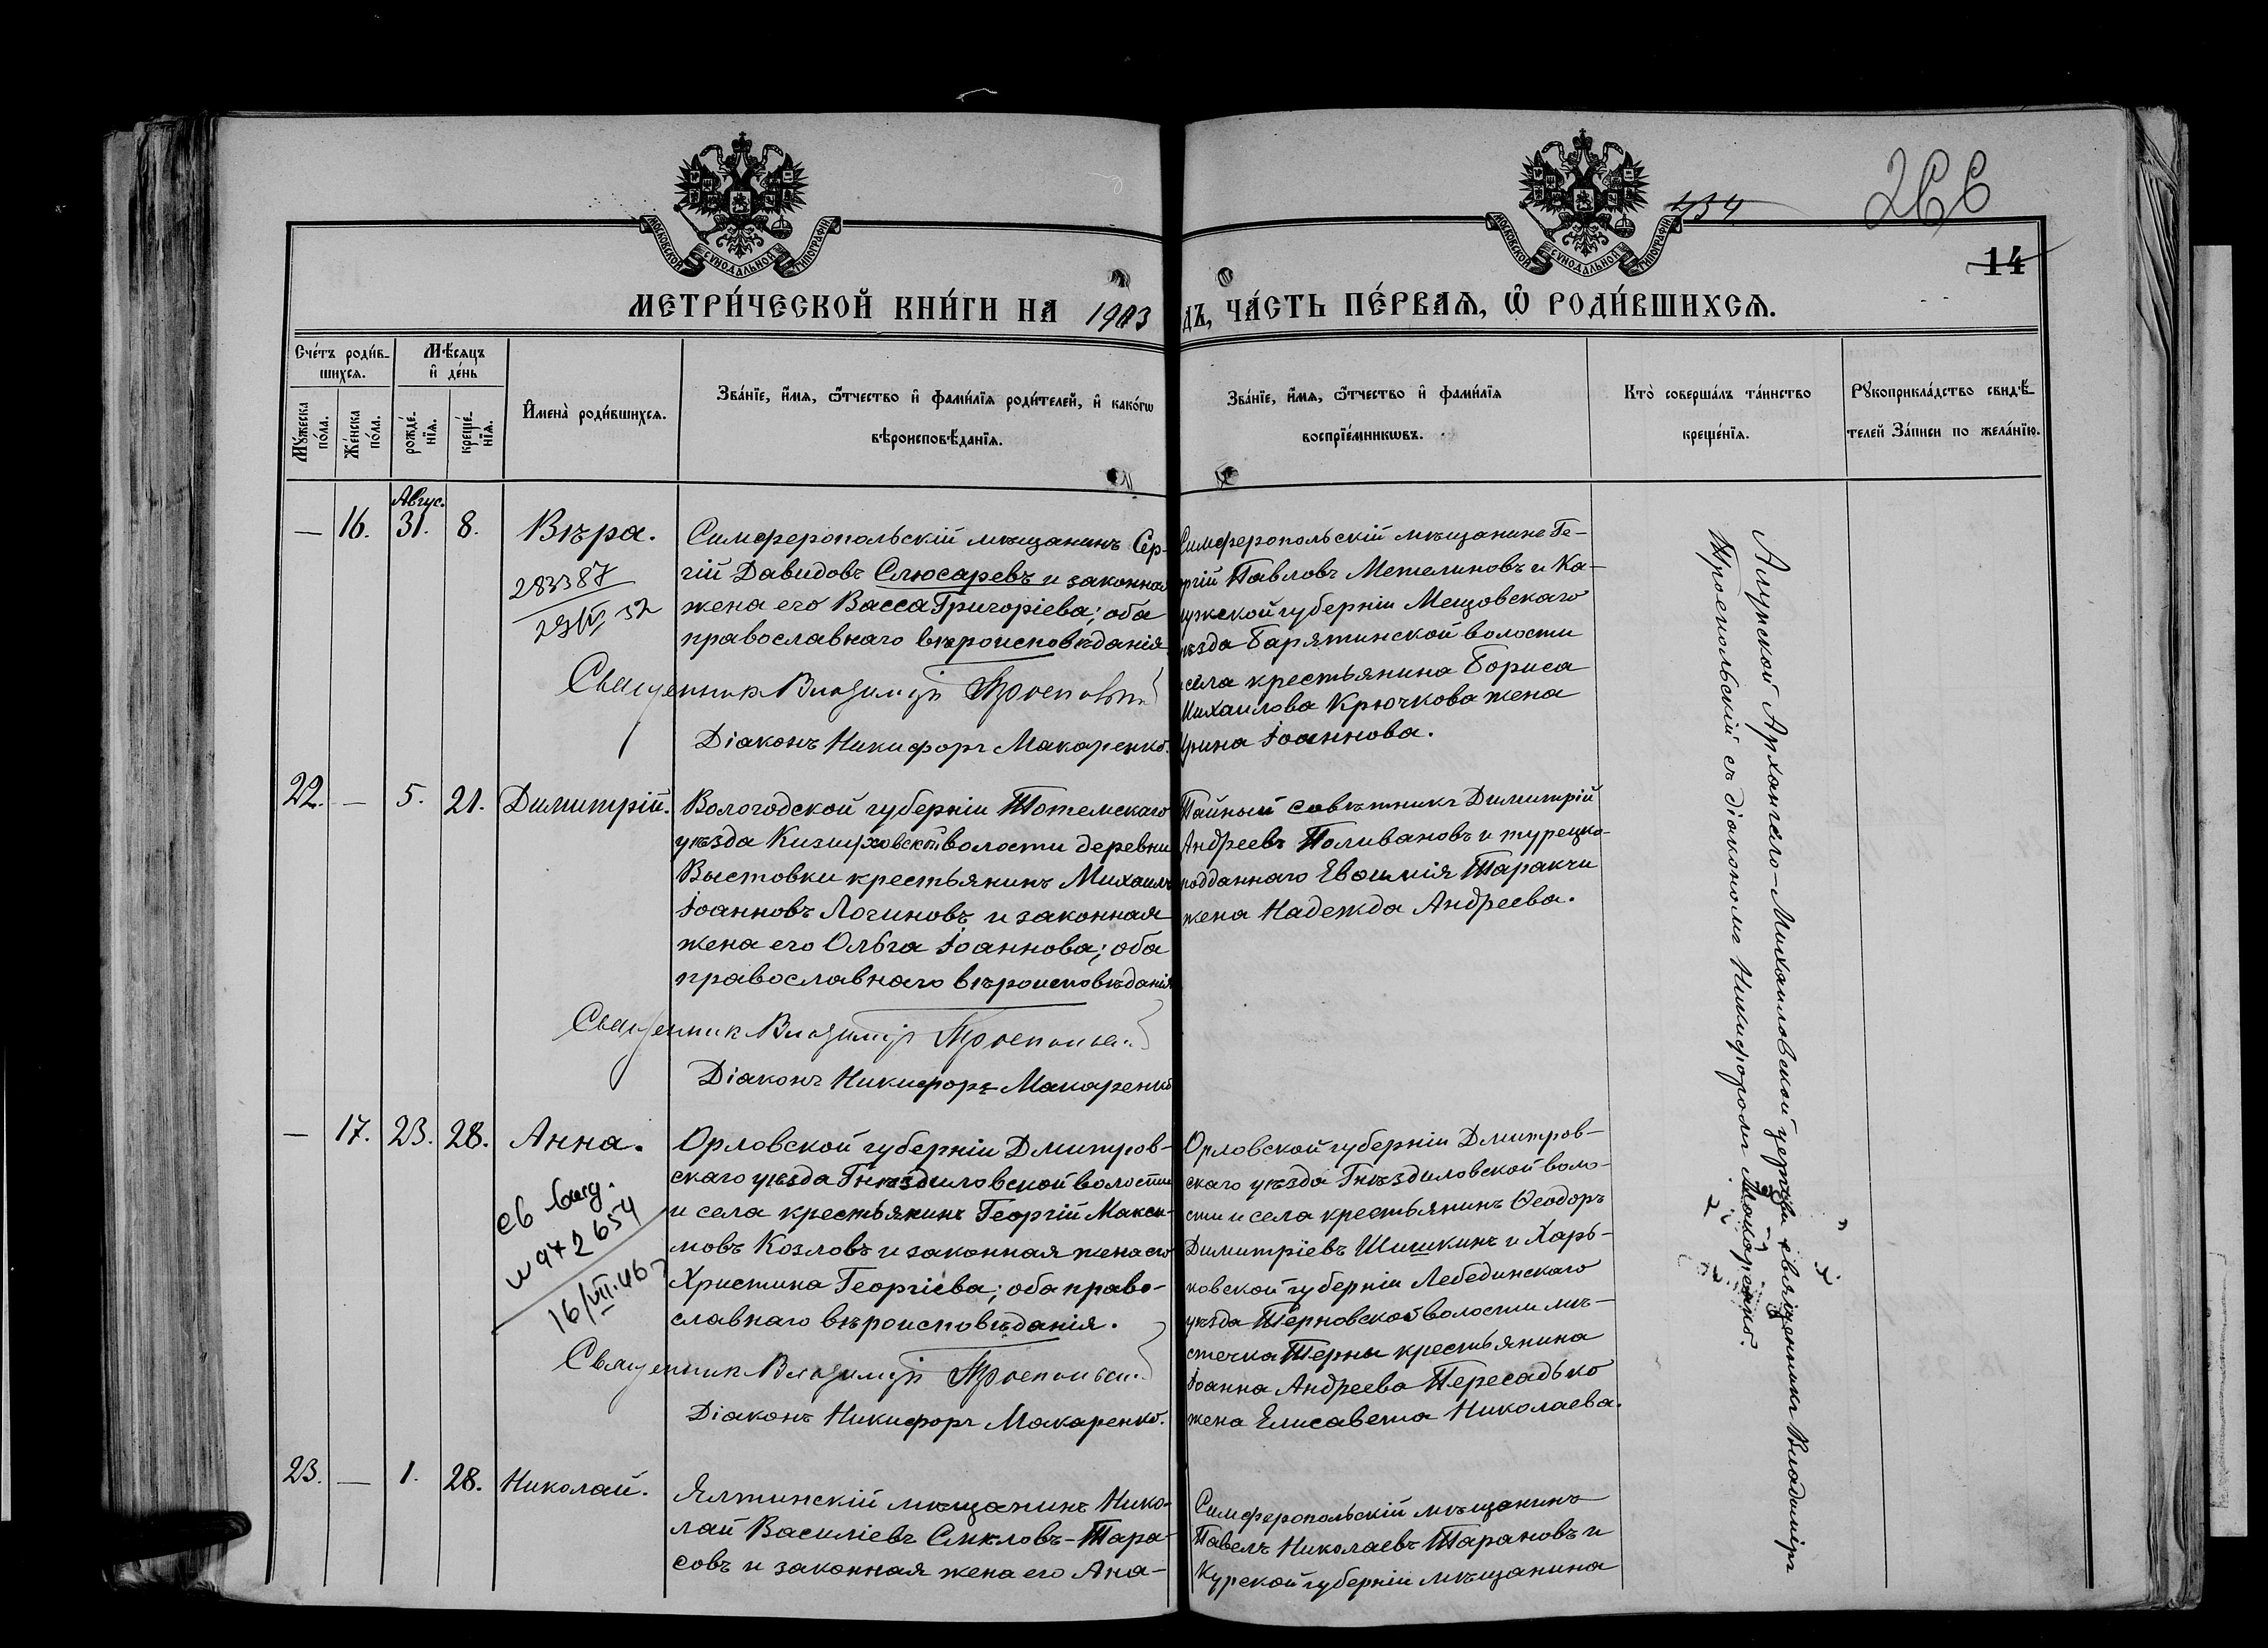 434
266
14
МОСКОВСКОЙ СѴНОДАЛЬНОЙ ТИПОГРАФІИ
МОСКОВСКОЙ СѴНОДАЛЬНОЙ ТИПОГРАФІИ
МЕТРИ́ЧЕСКОЙ КНИ́ГИ НА 1903
ДЪ, ЧА́СТЬ ПЕ́РВАѦ, Ѽ РОДИ́ВШИХСѦ.
Сче́тъ роди́в-
шихсѧ.
Мѣ́сѧцъ
и҆ де́нь
Мꙋ́жеска
по́ла.
Же́нска
по́ла.
рожде́-
нїѧ.
креще́-
нїѧ.
И҆мена̀ роди́вшихсѧ.
Зва́нїе, и҆́мѧ, ѻ҆́тчество и҆ фами́лїѧ роди́телей, и҆ како́гѡ
вѣроисповѣ́данїѧ.
Зва́нїе, и҆́мѧ, ѻ҆́тчество и҆ фами́лїѧ
воспрїе́мникѡвъ.
Кто̀ соверша́лъ та́инство
креще́нїѧ.
Рꙋкоприкла́дство свидѣ́-
телей За́писи по жела́нїю.
Авгус.
— 16. 31. 8. Вѣра.
283387
29/IV 52
Симферопольскій мѣщанинъ Сер-
гій Давидовъ Слюсаревъ и законная
жена его Васса Григоріева; оба
православнаго вѣроисповѣданія.
Священник Владимір Троепольскій
Діаконъ Никифоръ Макаренко.
Симферопольскій мѣщанинъ Ге-
оргій Павловъ Метелиновъ и Ка-
лужской губерніи Мещовскаго
уѣзда Барятинской волости
села крестьянина Бориса
Михаилова Крючкова жена
Ирина Іоаннова.
22. — 5. 21. Димитрій.
Вологодской губерніи Тотемскаго
волости деревни
Выстовки крестьянинъ Михаилъ
Іоанновъ Логиновъ и законная
жена его Ольга Іоаннова; оба
православнаго вѣроисповѣданія
Священник Владимір Троепольскій
Діаконъ Никифоръ Макаренко
Тайный совѣтникъ Димитрій
Андреевъ Поливановъ и турецко-
подданнаго Евѳимія Таракчи
жена Надежда Андреева.
— 17. 23. 28. Анна.
16/VII.46
Орловской губерніи Дмитров-
скаго уѣзда Гнѣздиловской волости
и села крестьянинъ Георгій Макси-
мовъ Козловъ и законная жена его
Христина Георгіева; оба право-
славнаго вѣроисповѣданія.
Священник Владимір Троепольскій
Діаконъ Никифоръ Макаренко.
Орловской губерніи Дмитров-
скаго уѣзда Гнѣздиловской воло-
сти и села крестьянинъ Ѳеодоръ
Димитріевъ Шишкинъ и Харь-
ковской губерніи Лебединскаго
уѣзда Терновской волости мѣ-
стечка Терны крестьянина
Іоанна Андреева Пересадько
жена Елисавета Николаева.
23. — 1. 28. Николай.
Ялтинскій мѣщанинъ Нико-
лай Василіевъ Смкловъ-Тара-
совъ и законная жена его Ана-
Симферопольскій мѣщанинъ
Павелъ Николаевъ Тарановъ и
Курской губерніи мѣщанина
Алупкской Архангело-Михаиловской церкви священникъ Владиміръ
Троепольскій съ діакономъ Никифоромъ Макаренко.